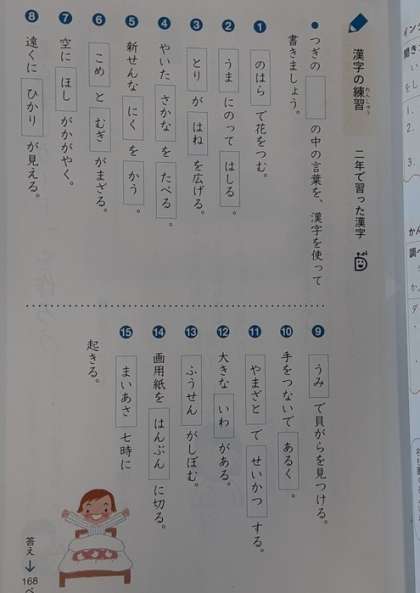 漢字の練習 二年で習った漢字
れんしゅう
つぎの の中の言葉を、漢字を使って
書きましょう。
1 のはら で花をつむ。
2 うま にのって はしる 。
3 とり が はね を広げる。
4 やいた さかな を たべる 。
5 新せんな にく を かう 。
6 こめ と むぎ がまざる。
7 空に ほし がかがやく。
8 遠くに ひかり が見える。
9 うみ で貝がらを見つける。
10 手をつないで あるく 。
11 やまざと で せいかつ する。
12 大きな いわ がある。
13 ふうせん がしぼむ。
14 画用紙を はんぶん に切る。
15 まいあさ 七時に
起きる。
答え→168ペ